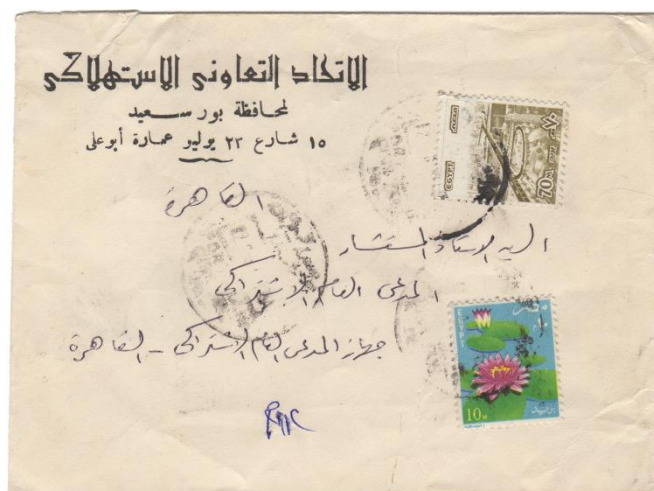 الاتحاد التعاونى الاستهلاكى
لمحافظة بور سعيد
١٥ شارع ٢٣ يوليو عمارة أبوعلى
القاهرة
السيد الاستاذ المستشار
المدعى العام الاشتراكى
جهاز المدعى العام الاشتراكى - القاهرة
مصر
EGYPT
٧٠
70 M
مصر
10 M
بريد